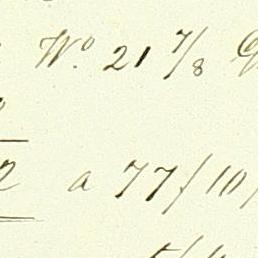 Wo. 21 7/8
2 a 77/10/